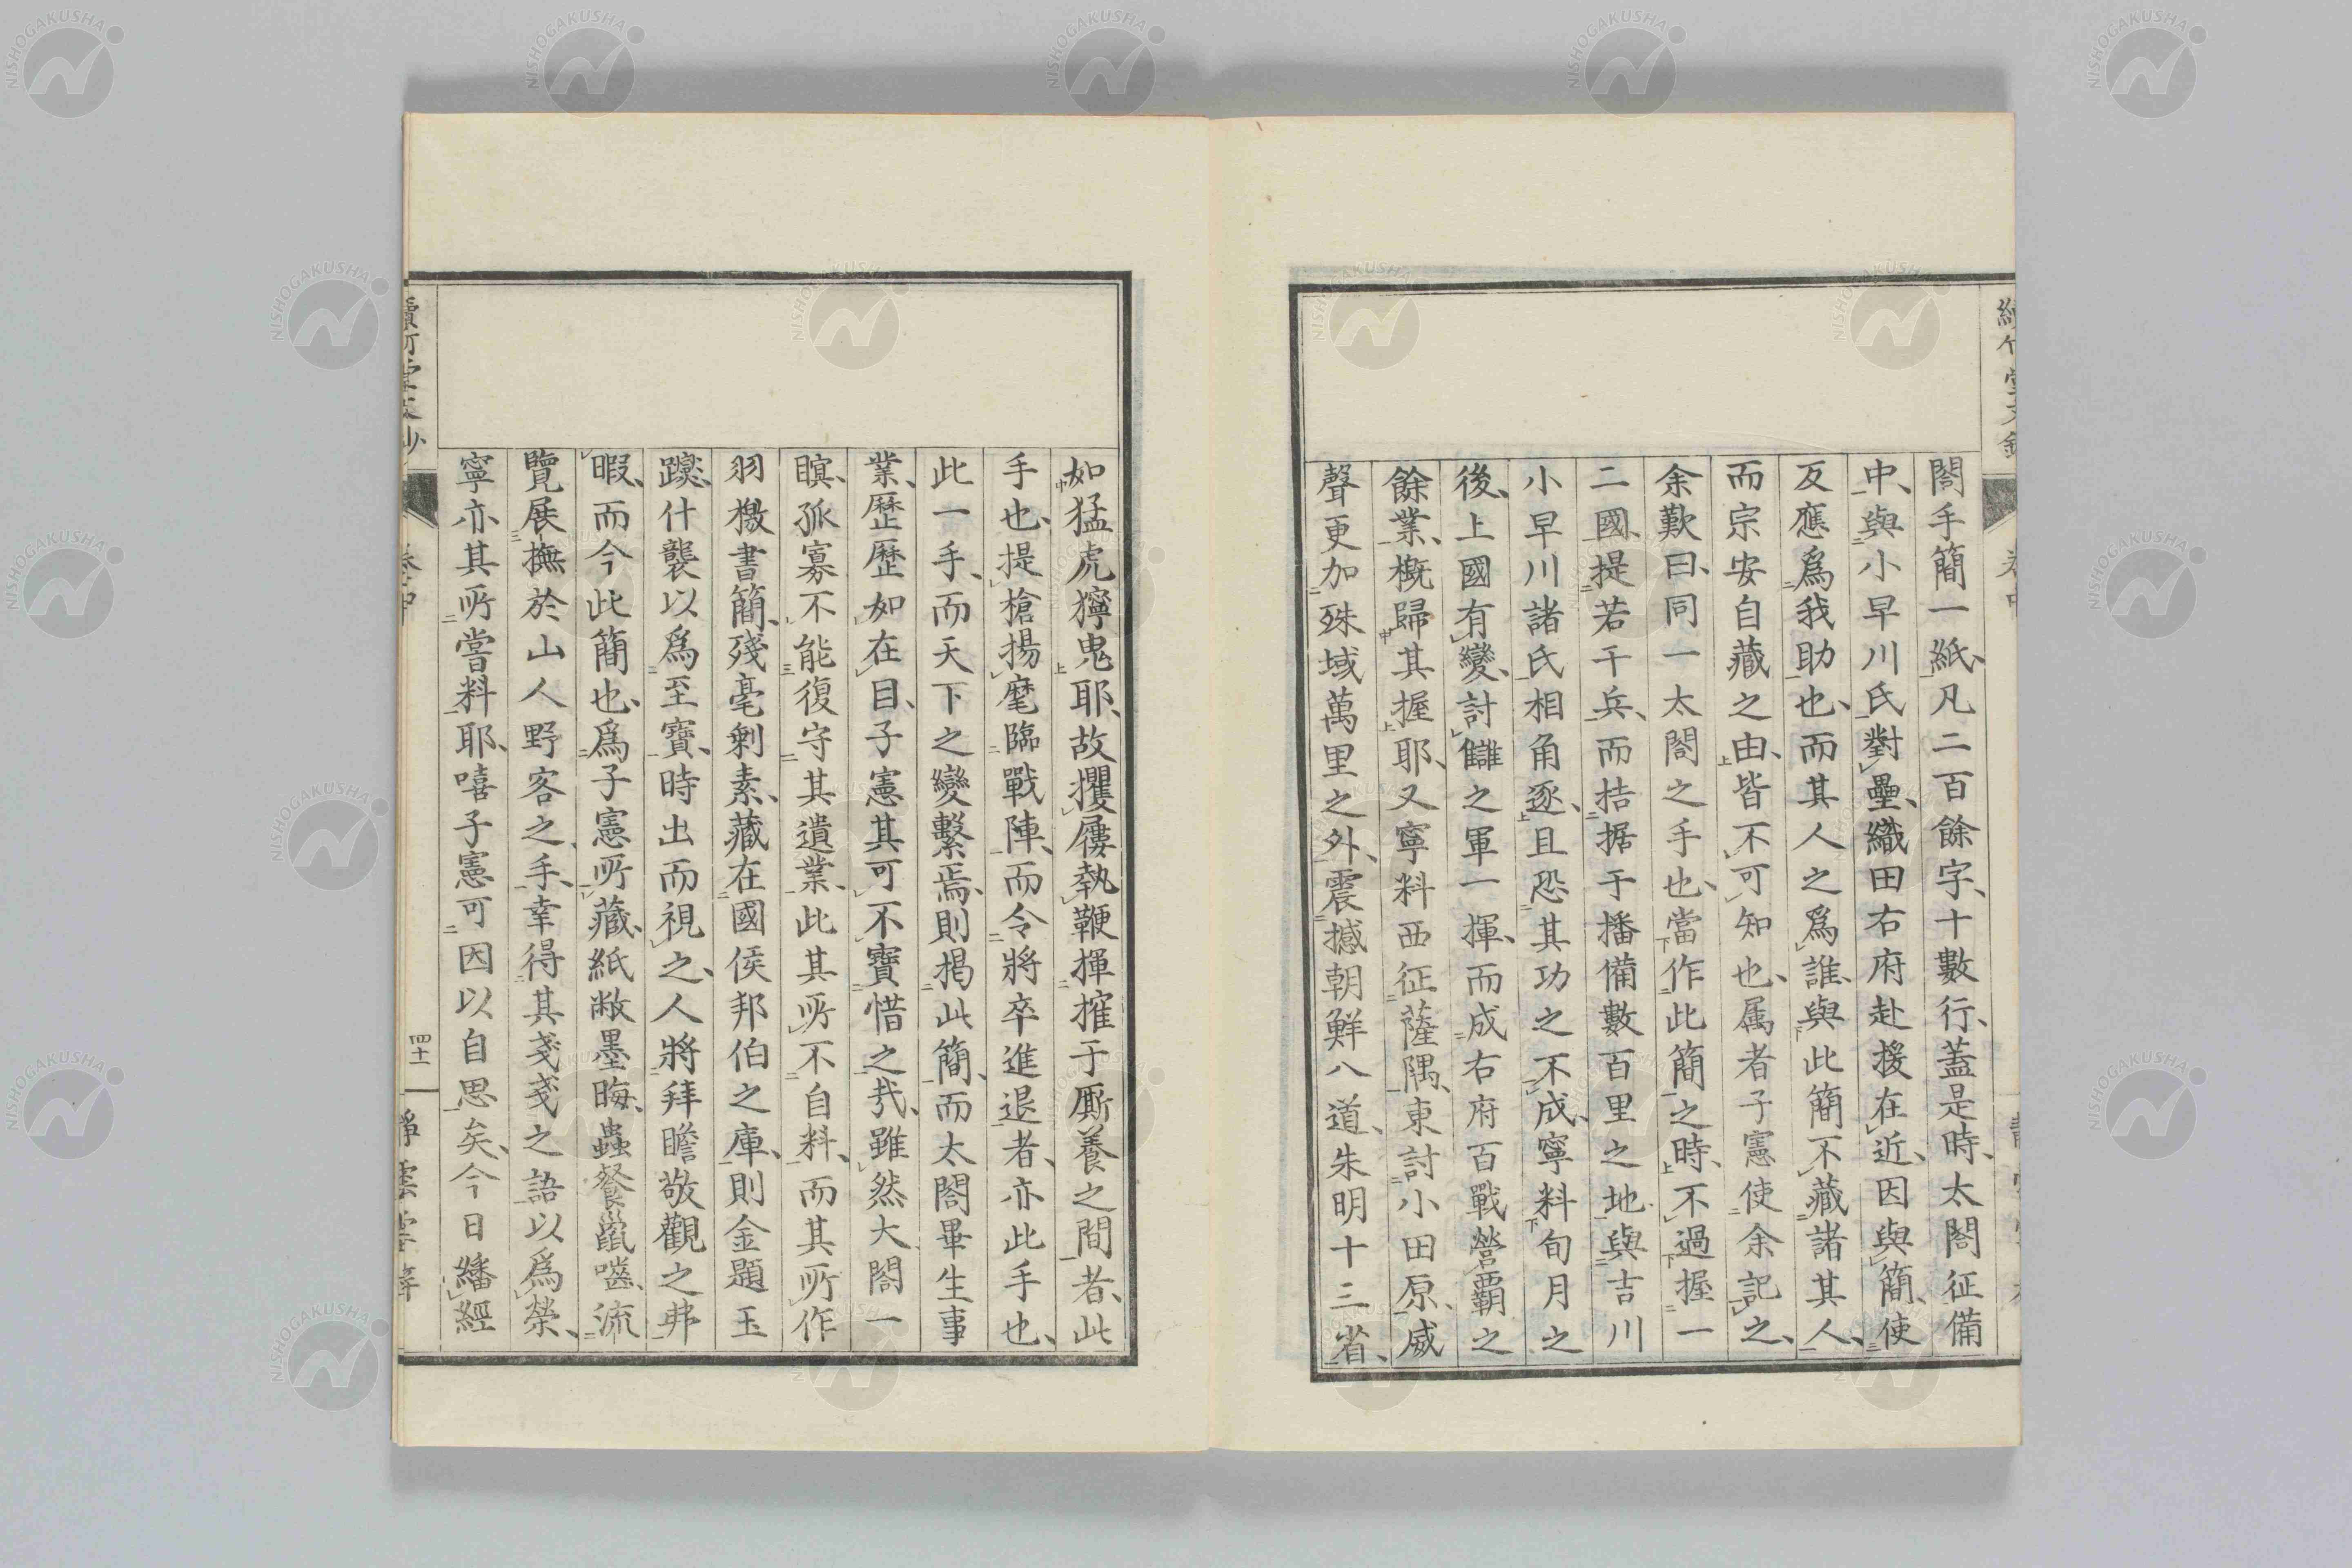 閤手簡一紙、凡二百餘字、十數行、蓋是時、太閤征備
中、與小早川氏對壘、織田右府赴援在近、因與簡、使
反應爲我助也、而其人之爲誰、與此簡不藏諸其人、
而宗安自藏之由、皆不可知也、属者子憲使余記之、
余歎曰、同一太閤之手也、當作此簡之時、不過握一
二國、提若干兵、而拮据于播備數百里之地、與吉川
小早川諸氏相角逐、且恐其功之不成、寧料旬月之
後、上國有變、討讎之軍一揮、而成右府百戰營覇之
餘業、概歸其握耶、又寧料西征薩隅、東討小田原、威
聲更加殊域萬里之外、震撼朝鮮八道、朱明十三省、
如猛虎獰鬼耶、故攫屨執鞭揮搉于厮養之間者、此
手也、提槍揚麾臨戰陣、而令將卒進退者、亦此手也、
此一手、而天下之變繫焉、則揭此簡、而太閤畢生事
業、歷歷如在目、子憲其可不寶惜之哉、雖然大閤一
瞑、孤寡不能復守其遺業、此其所不自料、而其所作
羽檄書簡、殘毫剩素、藏在國侯邦伯之庫、則金題玉
躞、什襲以爲至寶、時出而視之、人將拜瞻敬觀之弗
暇、而今此簡也、爲子憲所藏、紙敝墨晦、蟲餐鼠嚙、流
覽展撫於山人野客之手、幸得其戔戔之語以爲榮、
寧亦其所嘗料耶、嘻子憲可因以自思矣、今日繙經
卷中
四十一